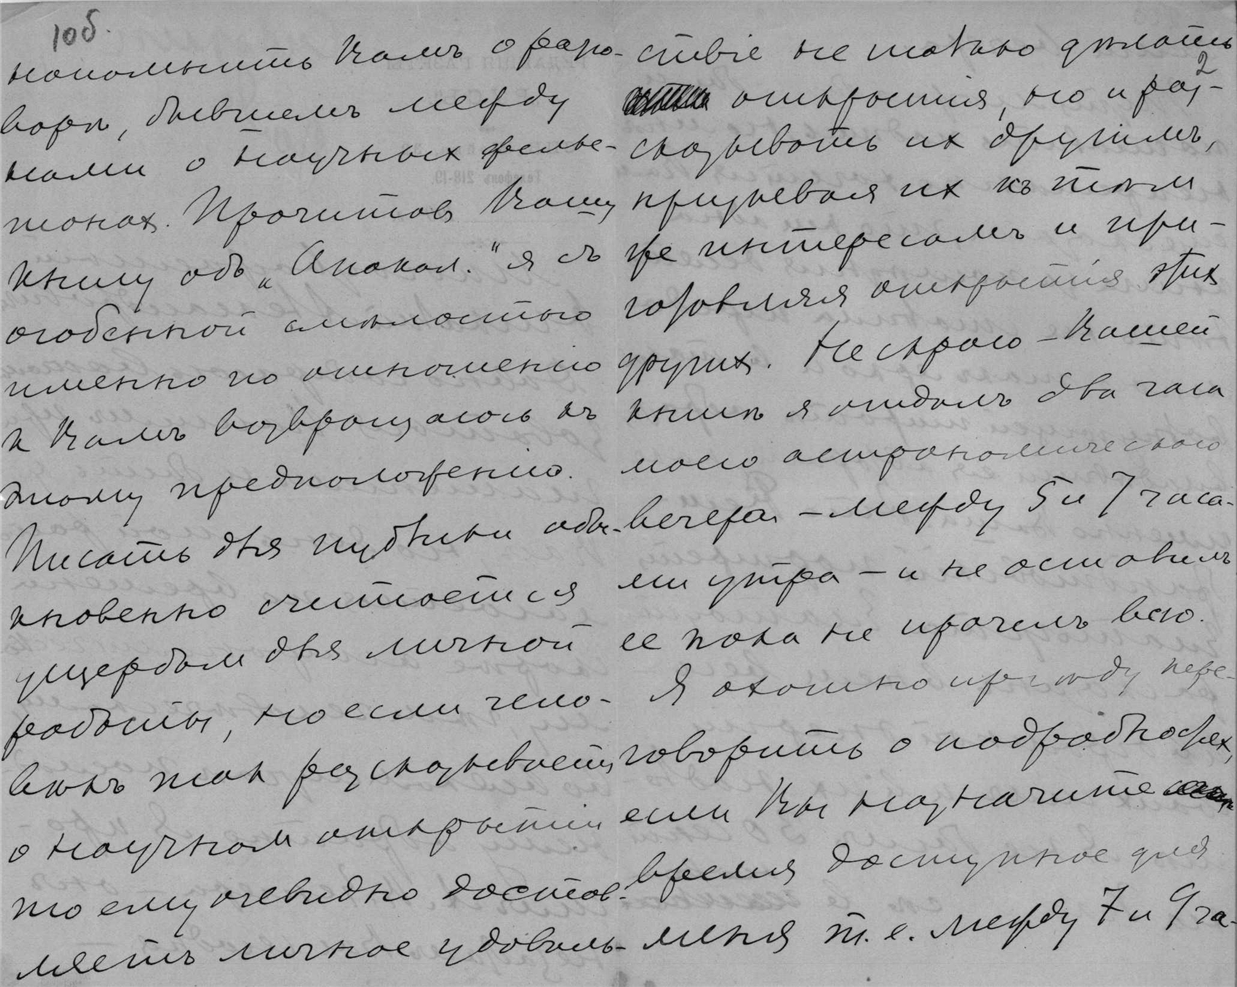 10б.
напомнить Вамъ о разго-
ворѣ, бывшемъ между
нами о научных фелье-
тонах. Прочитав Вашу
книгу объ „Апокал." я съ
особенной смѣлостью
именно по отношению
к Вамъ возвращаюсь къ
этому предположению.
Писать для публики обы-
кновенно считается
ущербом для личной
работы, но если чело-
вѣкъ так рассказывает
о научном открытии
то ему очевидно достав-
ляетъ личное удоволь-
2
ствіе не только дѣлать
открытія, но и раз-
сказывать их другимъ,
призывая их къ тѣм
же интересамъ и при-
готовляя открытія этих
других. Не скрою – Вашей
книгѣ я отдалъ два часа
моего астрономического
вечера – между 5 и 7 часа-
ми утра – и не оставилъ
ее пока не прочелъ всю.
Я охотно приѣду пере-
говорить о подробностях,
если Вы назначите
время доступное для
меня т.е. между 7 и 9 ча-